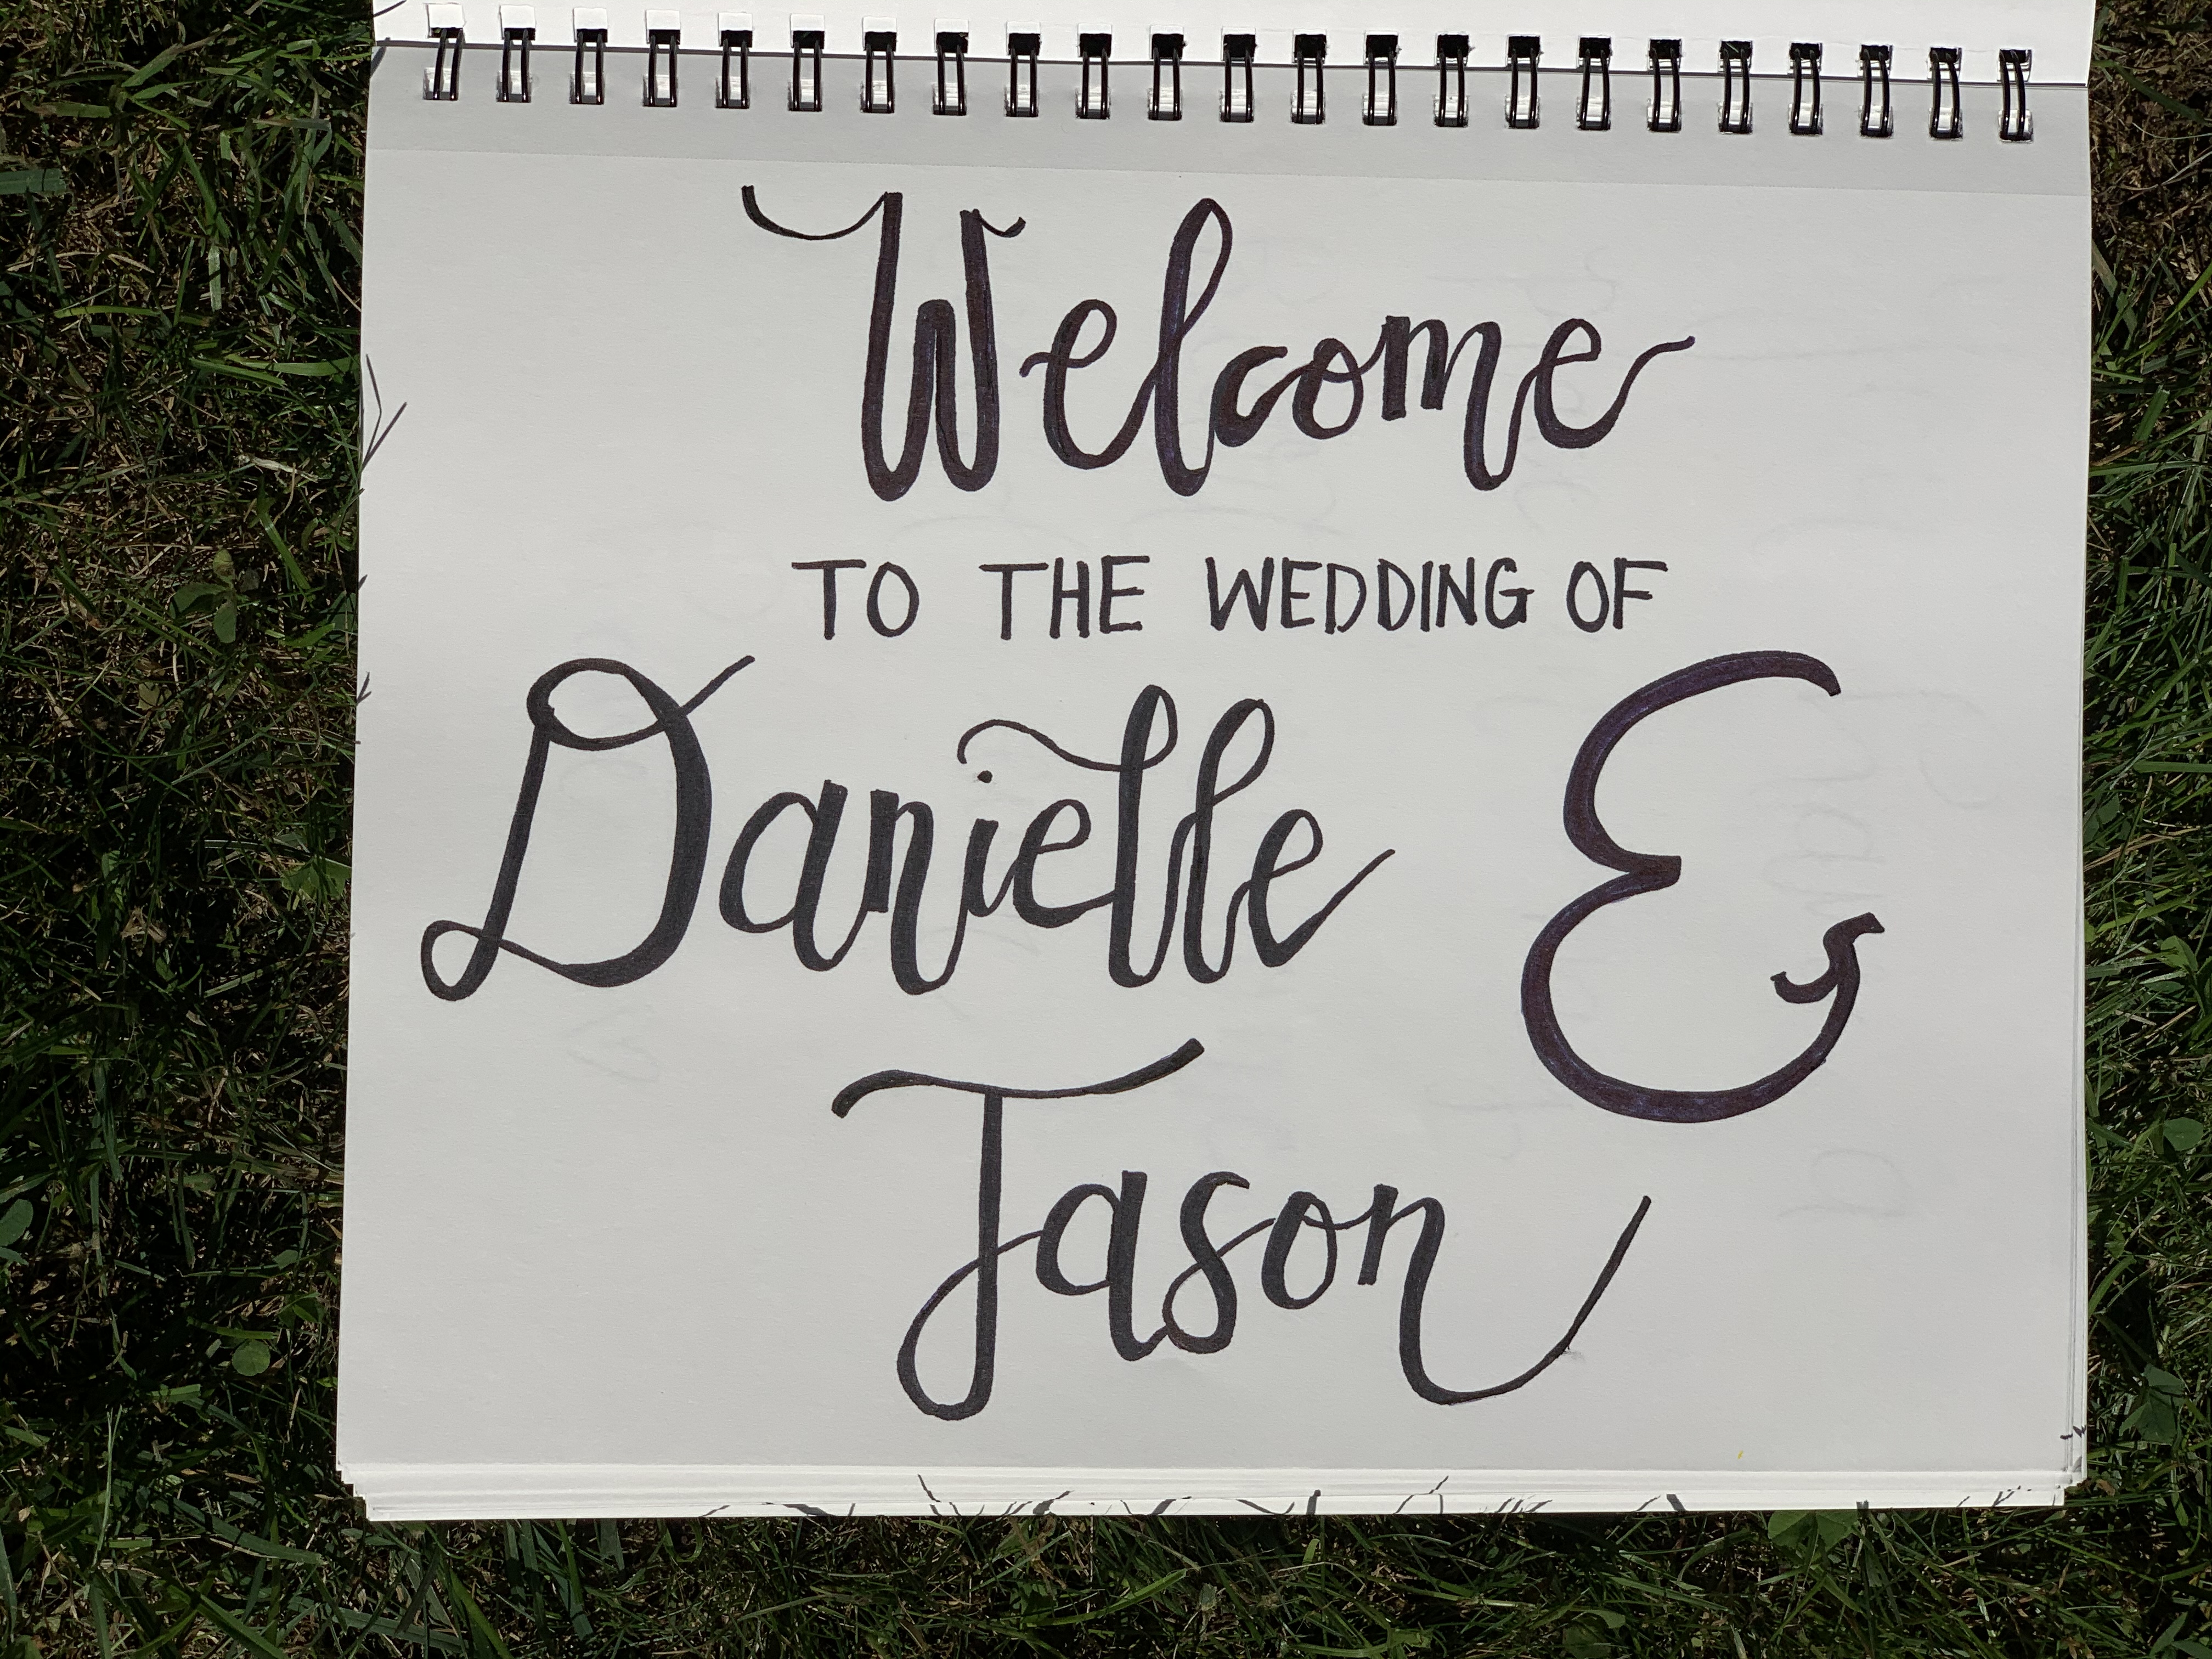 Welcome
TO THE WEDDING OF
Danielle &
Jason